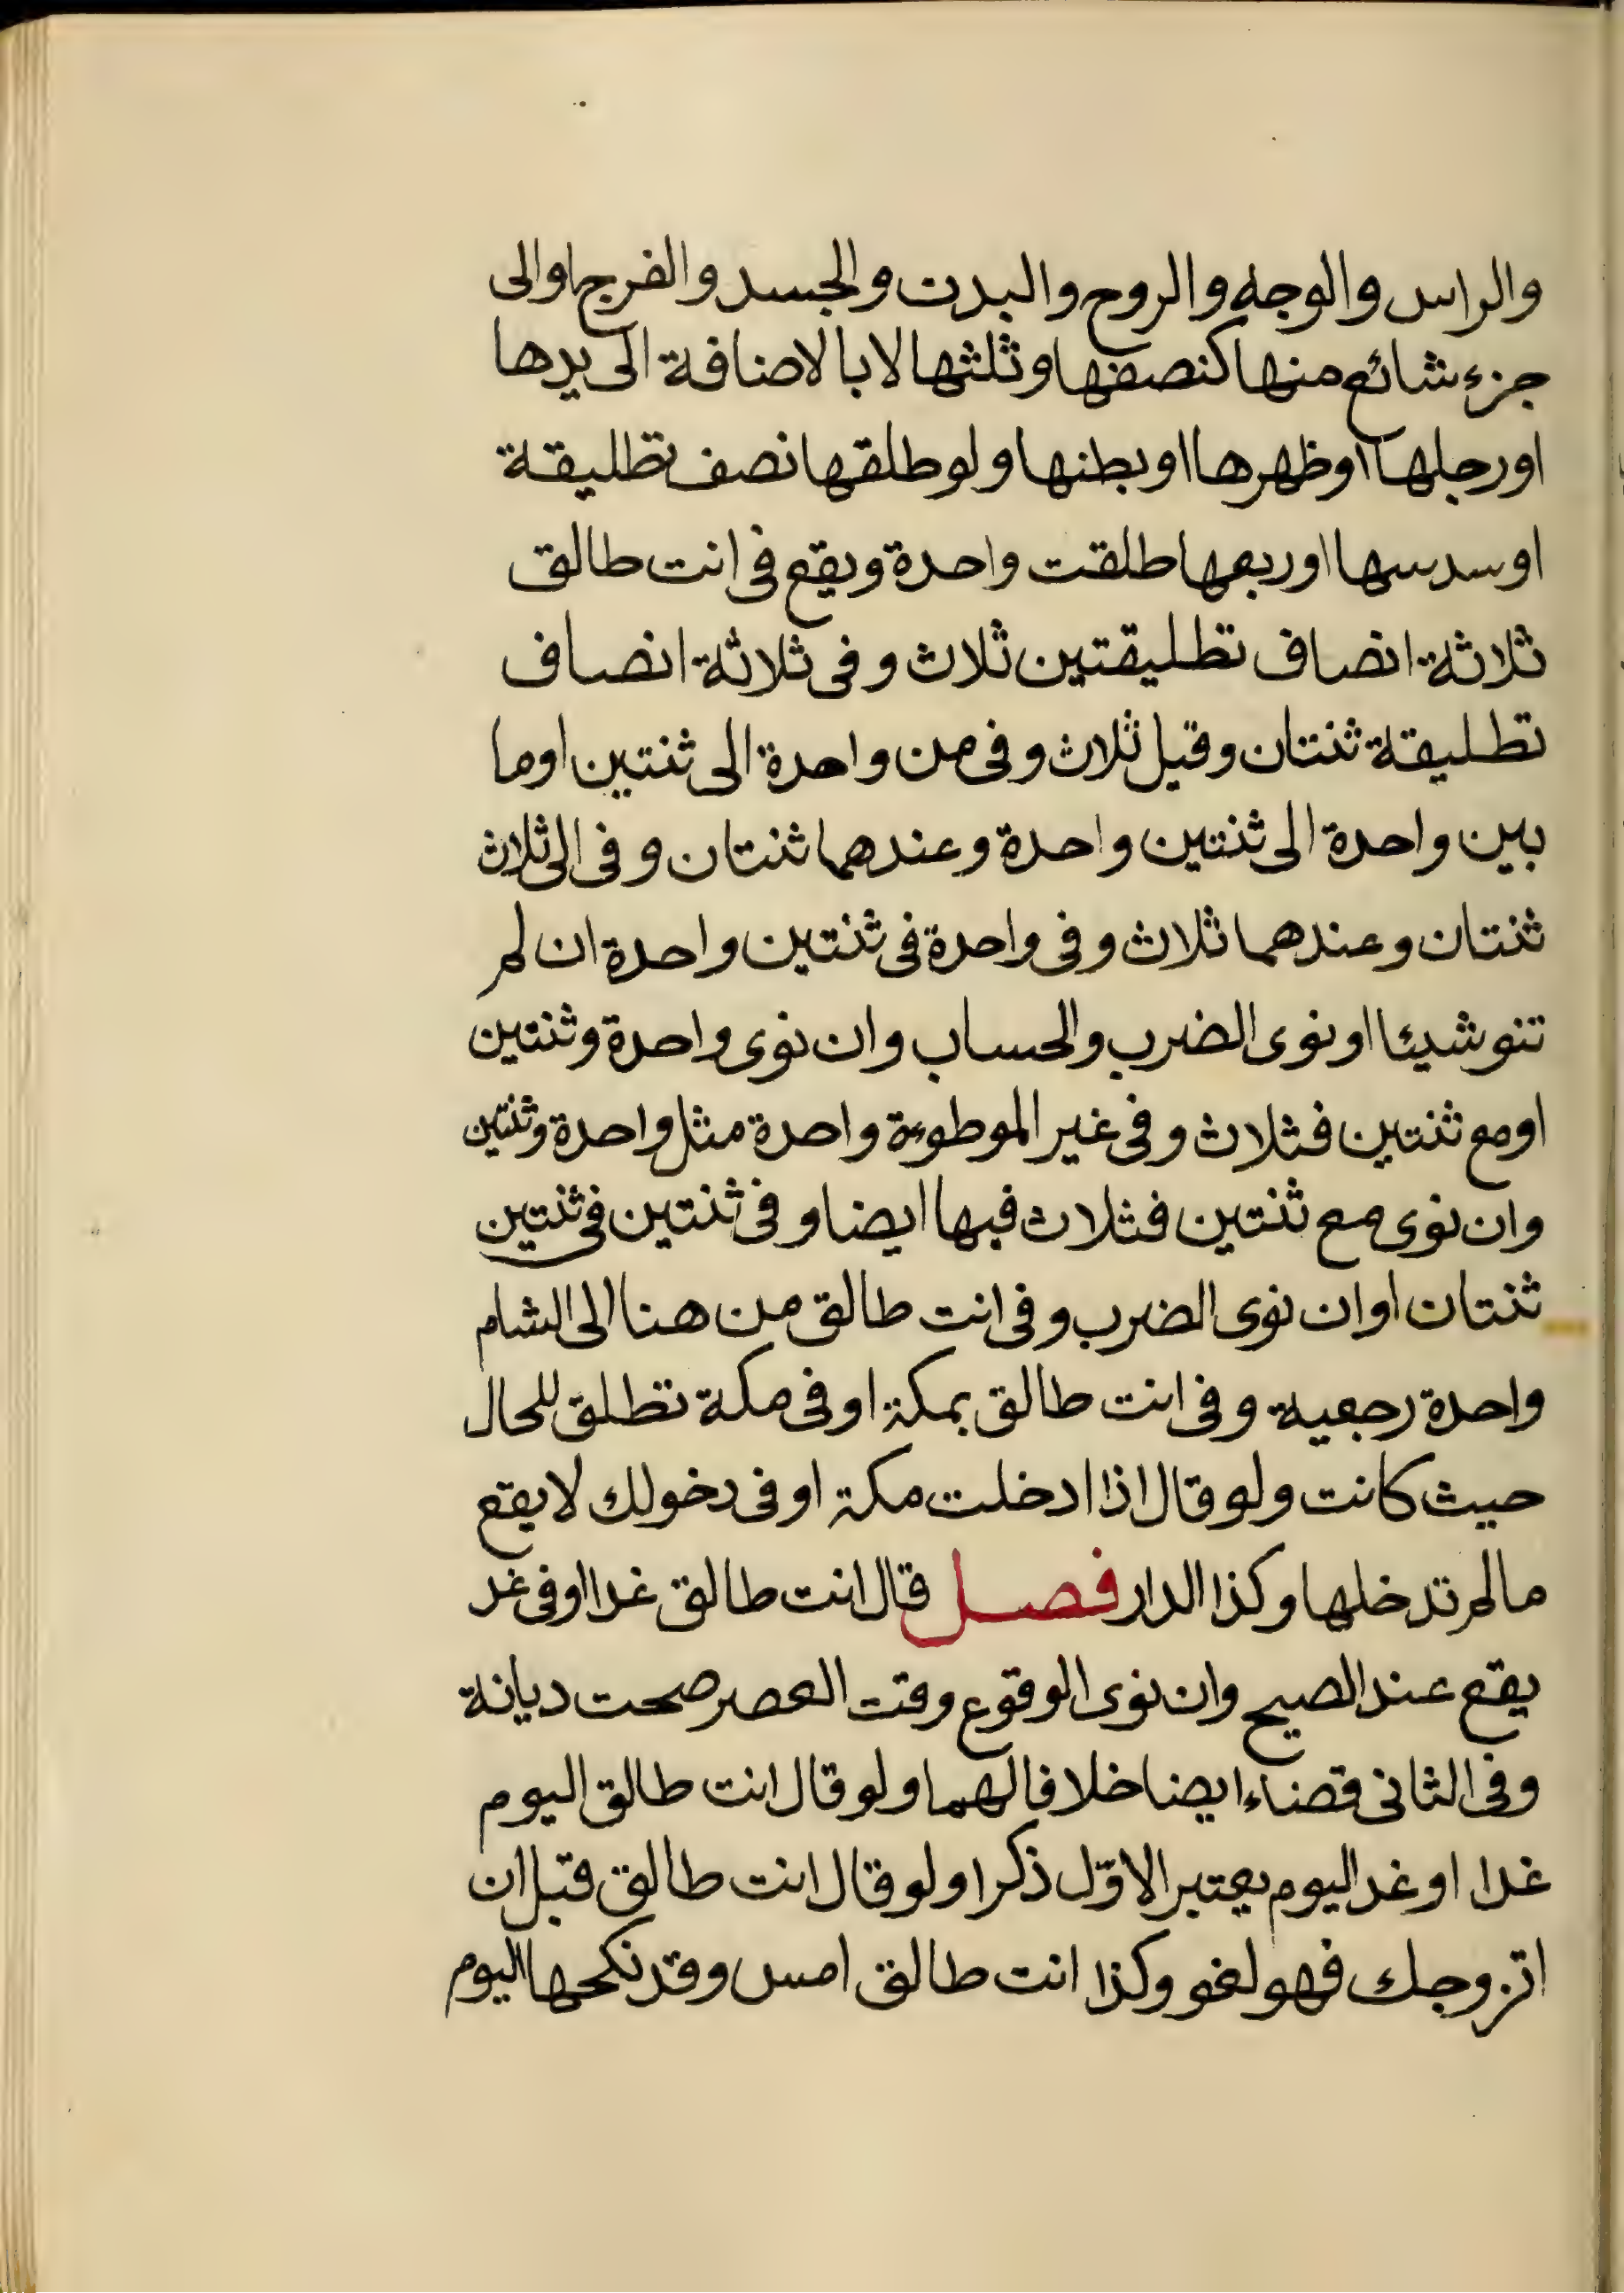 والراس والوجه والروح والبدن والجسد والفرج او الى
جزء شائع منها كنصفها وثلثها لا بالاضافة الى يدها
او رجلها او ظهرها او بطنها ولو طلقها نصف تطليقة
او سدسها او ربعها طلقت واحدة ويقع فى انت طالق
ثلاثة انصاف تطليقتين ثلاث وفى ثلاثة انصاف
تطليقة ثنتان وقيل ثلاث وفى من واحدة الى ثنتين او ما
بين واحدة الى ثنتين واحدة وعندهما ثنتان وفى الى ثلاث
ثنتان وعندهما ثلاث وفى واحدة فى ثنتين واحدة ان لم
تنو شيئا او نوى الضرب والحساب وان نوى واحدة وثنتين
او مع ثنتين فثلاث وفى غير الموطوءة واحدة مثل واحدة وثنتين
وان نوى مع ثنتين فثلاث فيها ايضا وفى ثنتين فى ثنتين
ثنتان او ان نوى الضرب وفى انت طالق من هنا الى الشام
واحدة رجعية وفى انت طالق بمكة او فى مكة تطلق للحال
حيث كانت ولو قال اذا ادخلت مكة او فى دخولك لا يقع
مالم تدخلها وكذا الدار فصل قال انت طالق غدا او فى غد
يقع عند الصبح وان نوى الوقوع وقت العصر صحت ديانة
وفى الثانى قضاء ايضا خلافا لهما ولو قال انت طالق اليوم
غدا او غد اليوم يعتبر الاوّل ذكرا ولو قال انت طالق قبل ان
اتزوجك فهو لغو وكذا انت طالق امس وقد نكحها اليوم